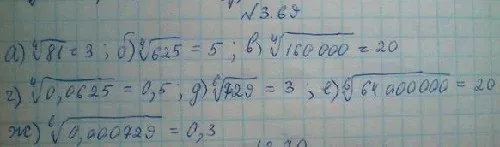 №3.69
а) ∜81 = 3 ; б) ∜625 = 5 ; в) ∜160 000 = 20
г) ∜0,0625 = 0,5 , д) ⁶√729 = 3 ; е) ⁶√64 000000 = 20
ж) ⁶√0,000729 = 0,3